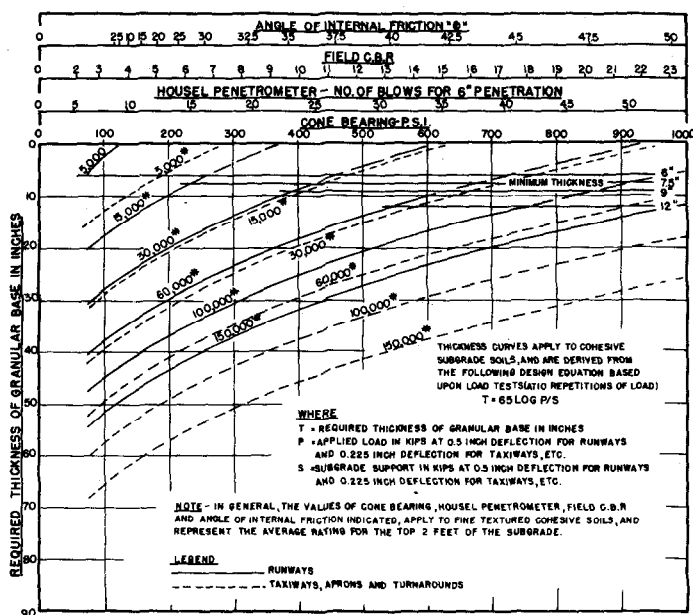 ANGLE OF INTERNAL FRICTION "Θ"
0 25 10 15 20 25 30 32.5 35 37.5 40 42.5 45 47.5 50
FIELD C.B.R
0 2 3 4 5 6 7 8 9 10 11 12 13 14 15 16 17 18 19 20 21 22 23
HOUSEL PENETROMETER - NO. OF BLOWS FOR 6" PENETRATION
0 5 10 15 20 25 30 35 40 45 50
CONE BEARING-P.S.I.
0 100 200 300 400 500 600 700 800 900 1000
REQUIRED THICKNESS OF GRANULAR BASE IN INCHES
0
10
20
30
40
50
60
70
80
90
5,000
5,000*
15,000*
15,000*
30,000*
30,000*
60,000*
60,000*
100,000*
100,000*
150,000*
150,000*
MINIMUM THICKNESS
6"
7.5"
9"
12"
THICKNESS CURVES APPLY TO COHESIVE
SUBGRADE SOILS, AND ARE DERIVED FROM
THE FOLLOWING DESIGN EQUATION BASED
UPON LOAD TESTS(ATIO REPETITIONS OF LOAD)
T = 65 LOG P/S
WHERE
T = REQUIRED THICKNESS OF GRANULAR BASE IN INCHES
P = APPLIED LOAD IN KIPS AT 0.5 INCH DEFLECTION FOR RUNWAYS
AND 0.225 INCH DEFLECTION FOR TAXIWAYS, ETC.
S = SUBGRADE SUPPORT IN KIPS AT 0.5 INCH DEFLECTION FOR RUNWAYS
AND 0.225 INCH DEFLECTION FOR TAXIWAYS, ETC.
NOTE - IN GENERAL, THE VALUES OF CONE BEARING, HOUSEL PENETROMETER, FIELD C.B.R
AND ANGLE OF INTERNAL FRICTION INDICATED, APPLY TO FINE TEXTURED COHESIVE SOILS, AND
REPRESENT THE AVERAGE RATING FOR THE TOP 2 FEET OF THE SUBGRADE.
LEGEND
RUNWAYS
TAXIWAYS, APRONS AND TURNAROUNDS